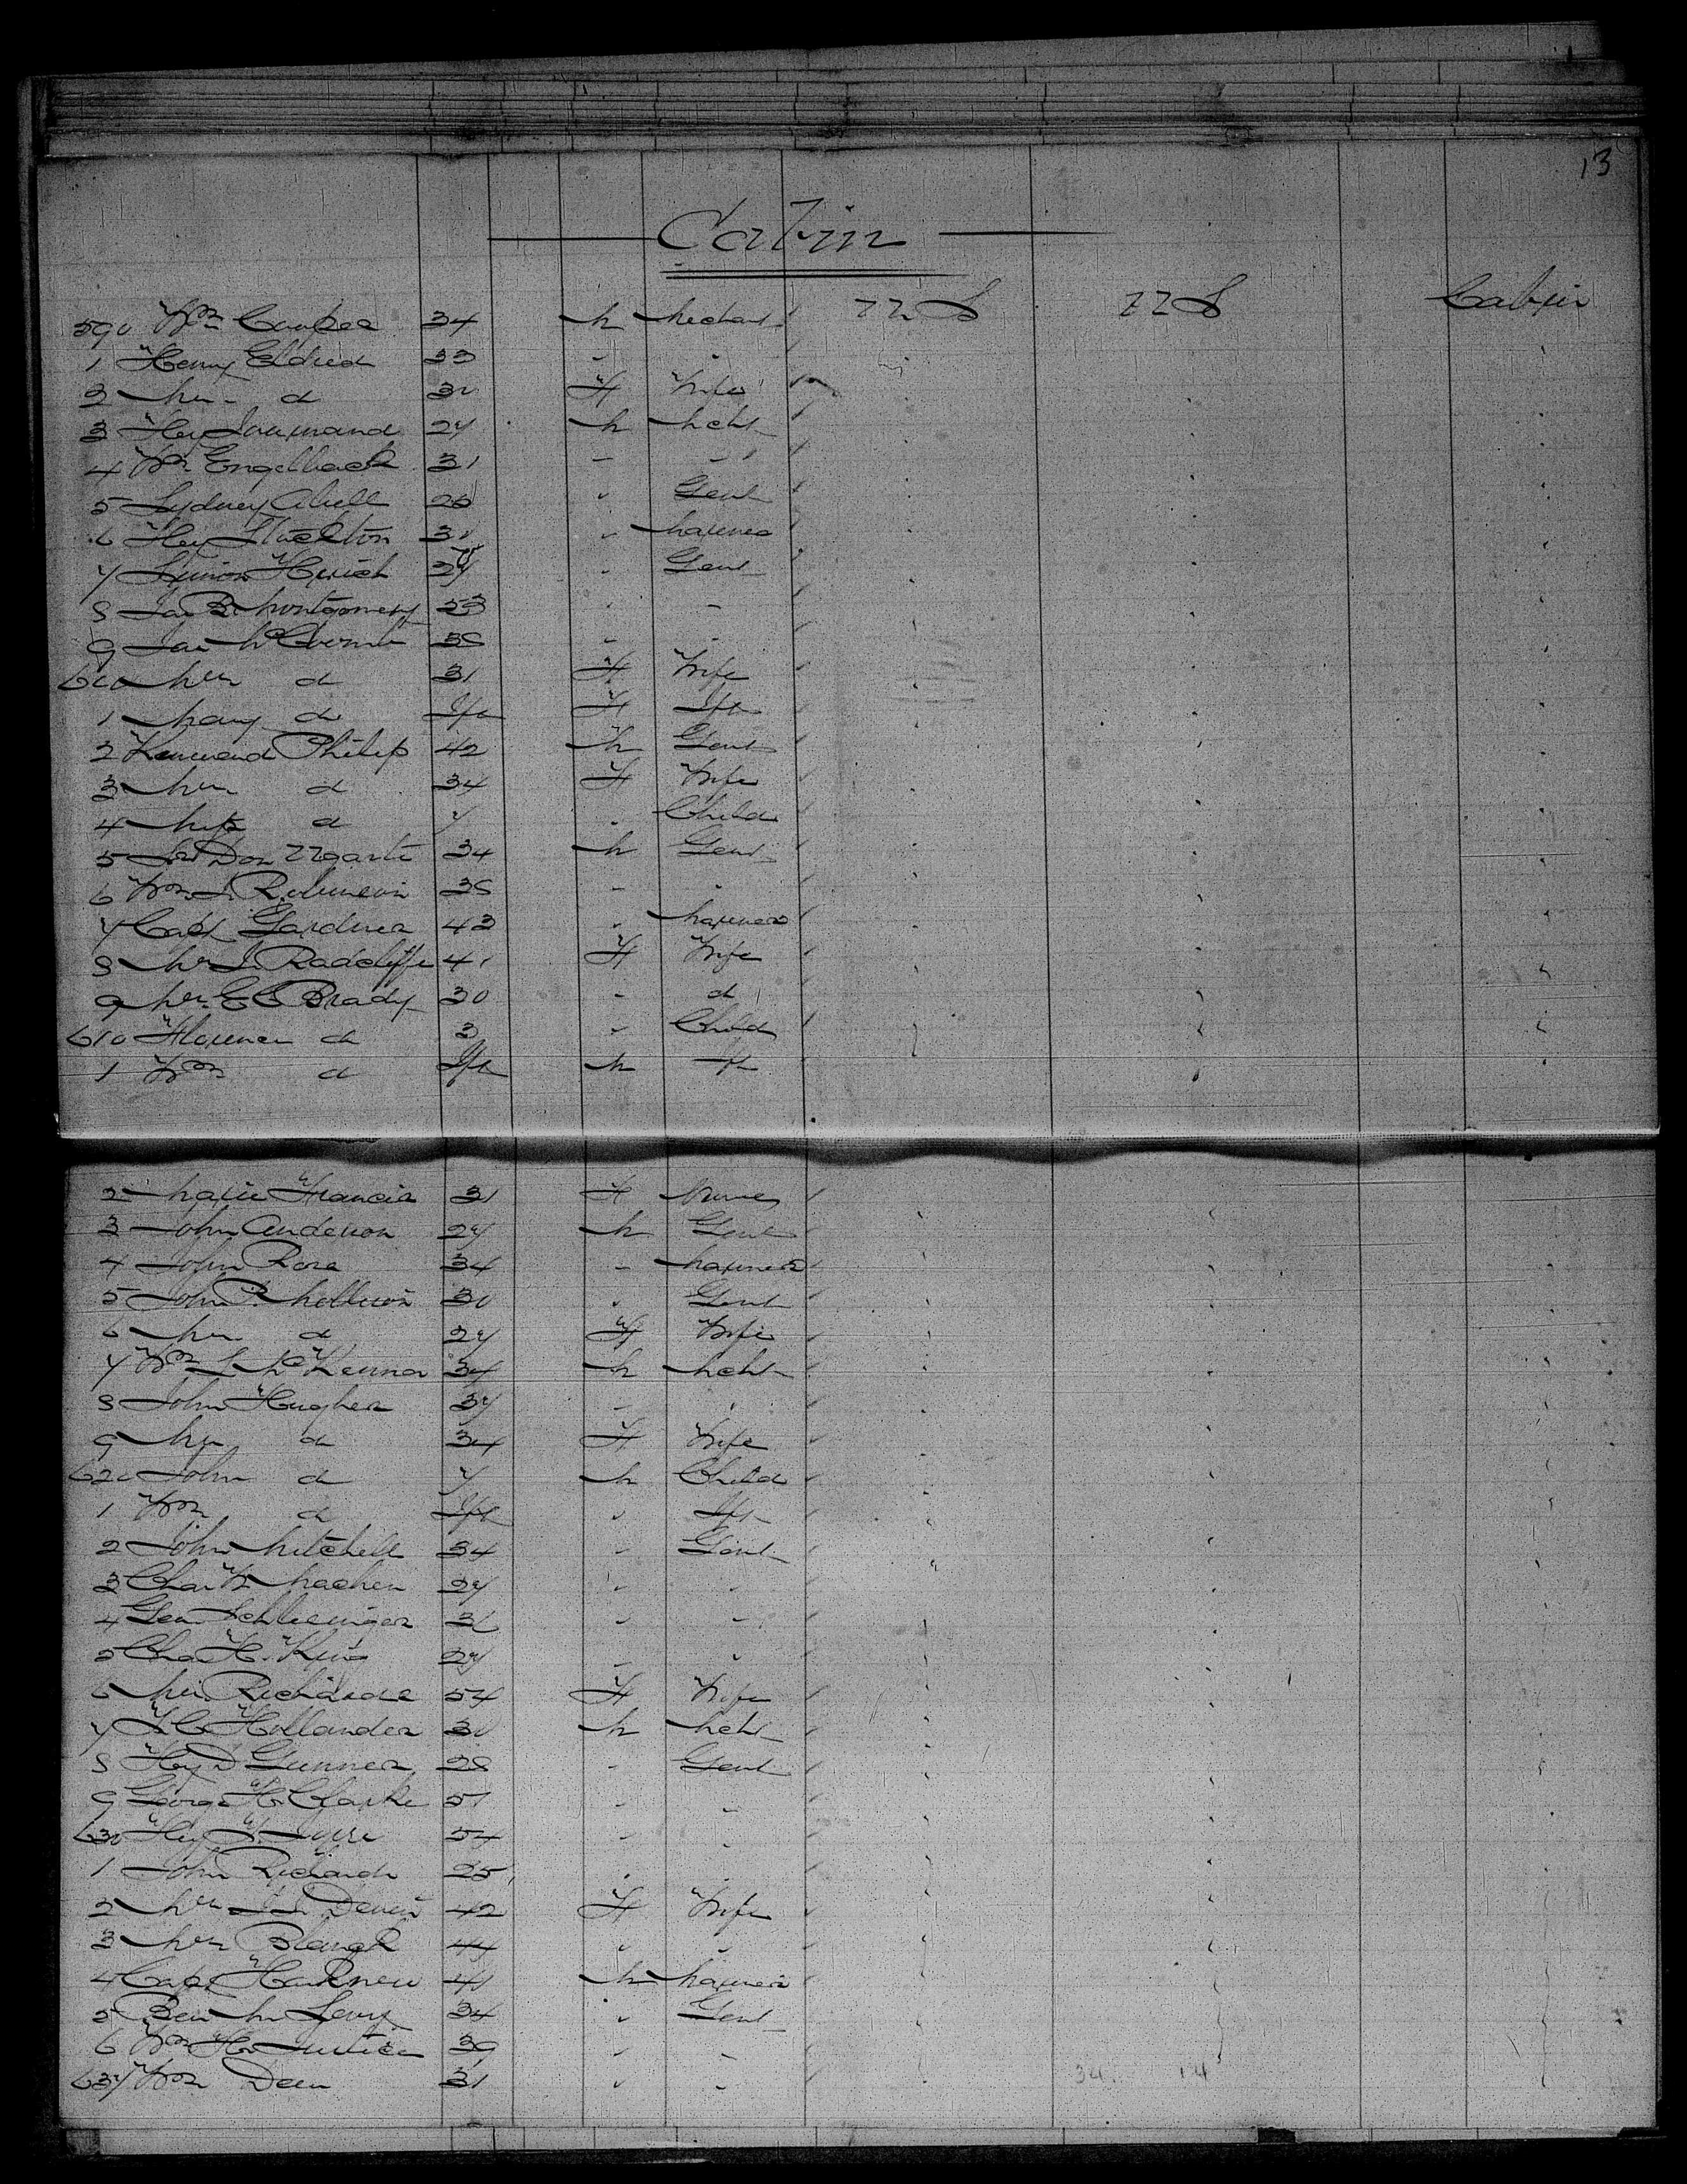 13
Cabin
590 Wm Cowper 34 M Mechant U S U S Cabin
1 Henry Eldred 33 " "
2 Mrs d 30 F Wife
3 Hey 24 M Mcht
4 Wm Engelback 31 " "
5 Sydney Abell 26 " Gent
6 Hey Stockton 30 " Mariner
7 Simon 27 " Gent
8 Jas B Montgomery 23 " "
9 Jas McComb 38 " "
600 Mrs d 31 F Wife
1 Mary d Ift F Ift
2 Kenward Philip 42 M Gent
3 Mrs d 34 F Wife
4 Miss d 7 " Child
5 Don Ugarte 34 M Gent
6 Wm S Robinson 38 " "
7 Capt Gardner 43 " Mariner
8 Mrs J Radcliffe 41 F Wife
9 Mrs E C Brady 30 " d
610 Florence d 3 " Child
1 Wm d Ift M Ift
2 Marie Francis 31 F Nurse
3 John Anderson 27 M Gent
4 John Rose 34 " Mariner
5 John P. 30 " Gent
6 Mrs d 27 F Wife
7 Wm S McKenna 34 M Mcht
8 John Hughes 37 " "
9 Mrs d 34 F Wife
620 John d 7 M Child
1 Wm d Ift " Ift
2 John Mitchell 34 " Gent
3 Chas W Machen 27 " "
4 Geo Schlesinger 31 " "
5 Chas H. King 27 " "
6 Mrs Richardson 54 F Wife
7 Hollander 30 M Mcht
8 Hey D Gunner 28 " Gent
9 George H Clarke 51 " "
630 Hey 54 " "
1 John Richards 25 " "
2 Mrs Devin 42 F Wife
3 Mrs 44 " "
4 Capt Harkness 41 M Mariner
5 Ben M Levy 34 " Gent
6 Wm H Justice 39 " "
637 Wm Deen 31 " "